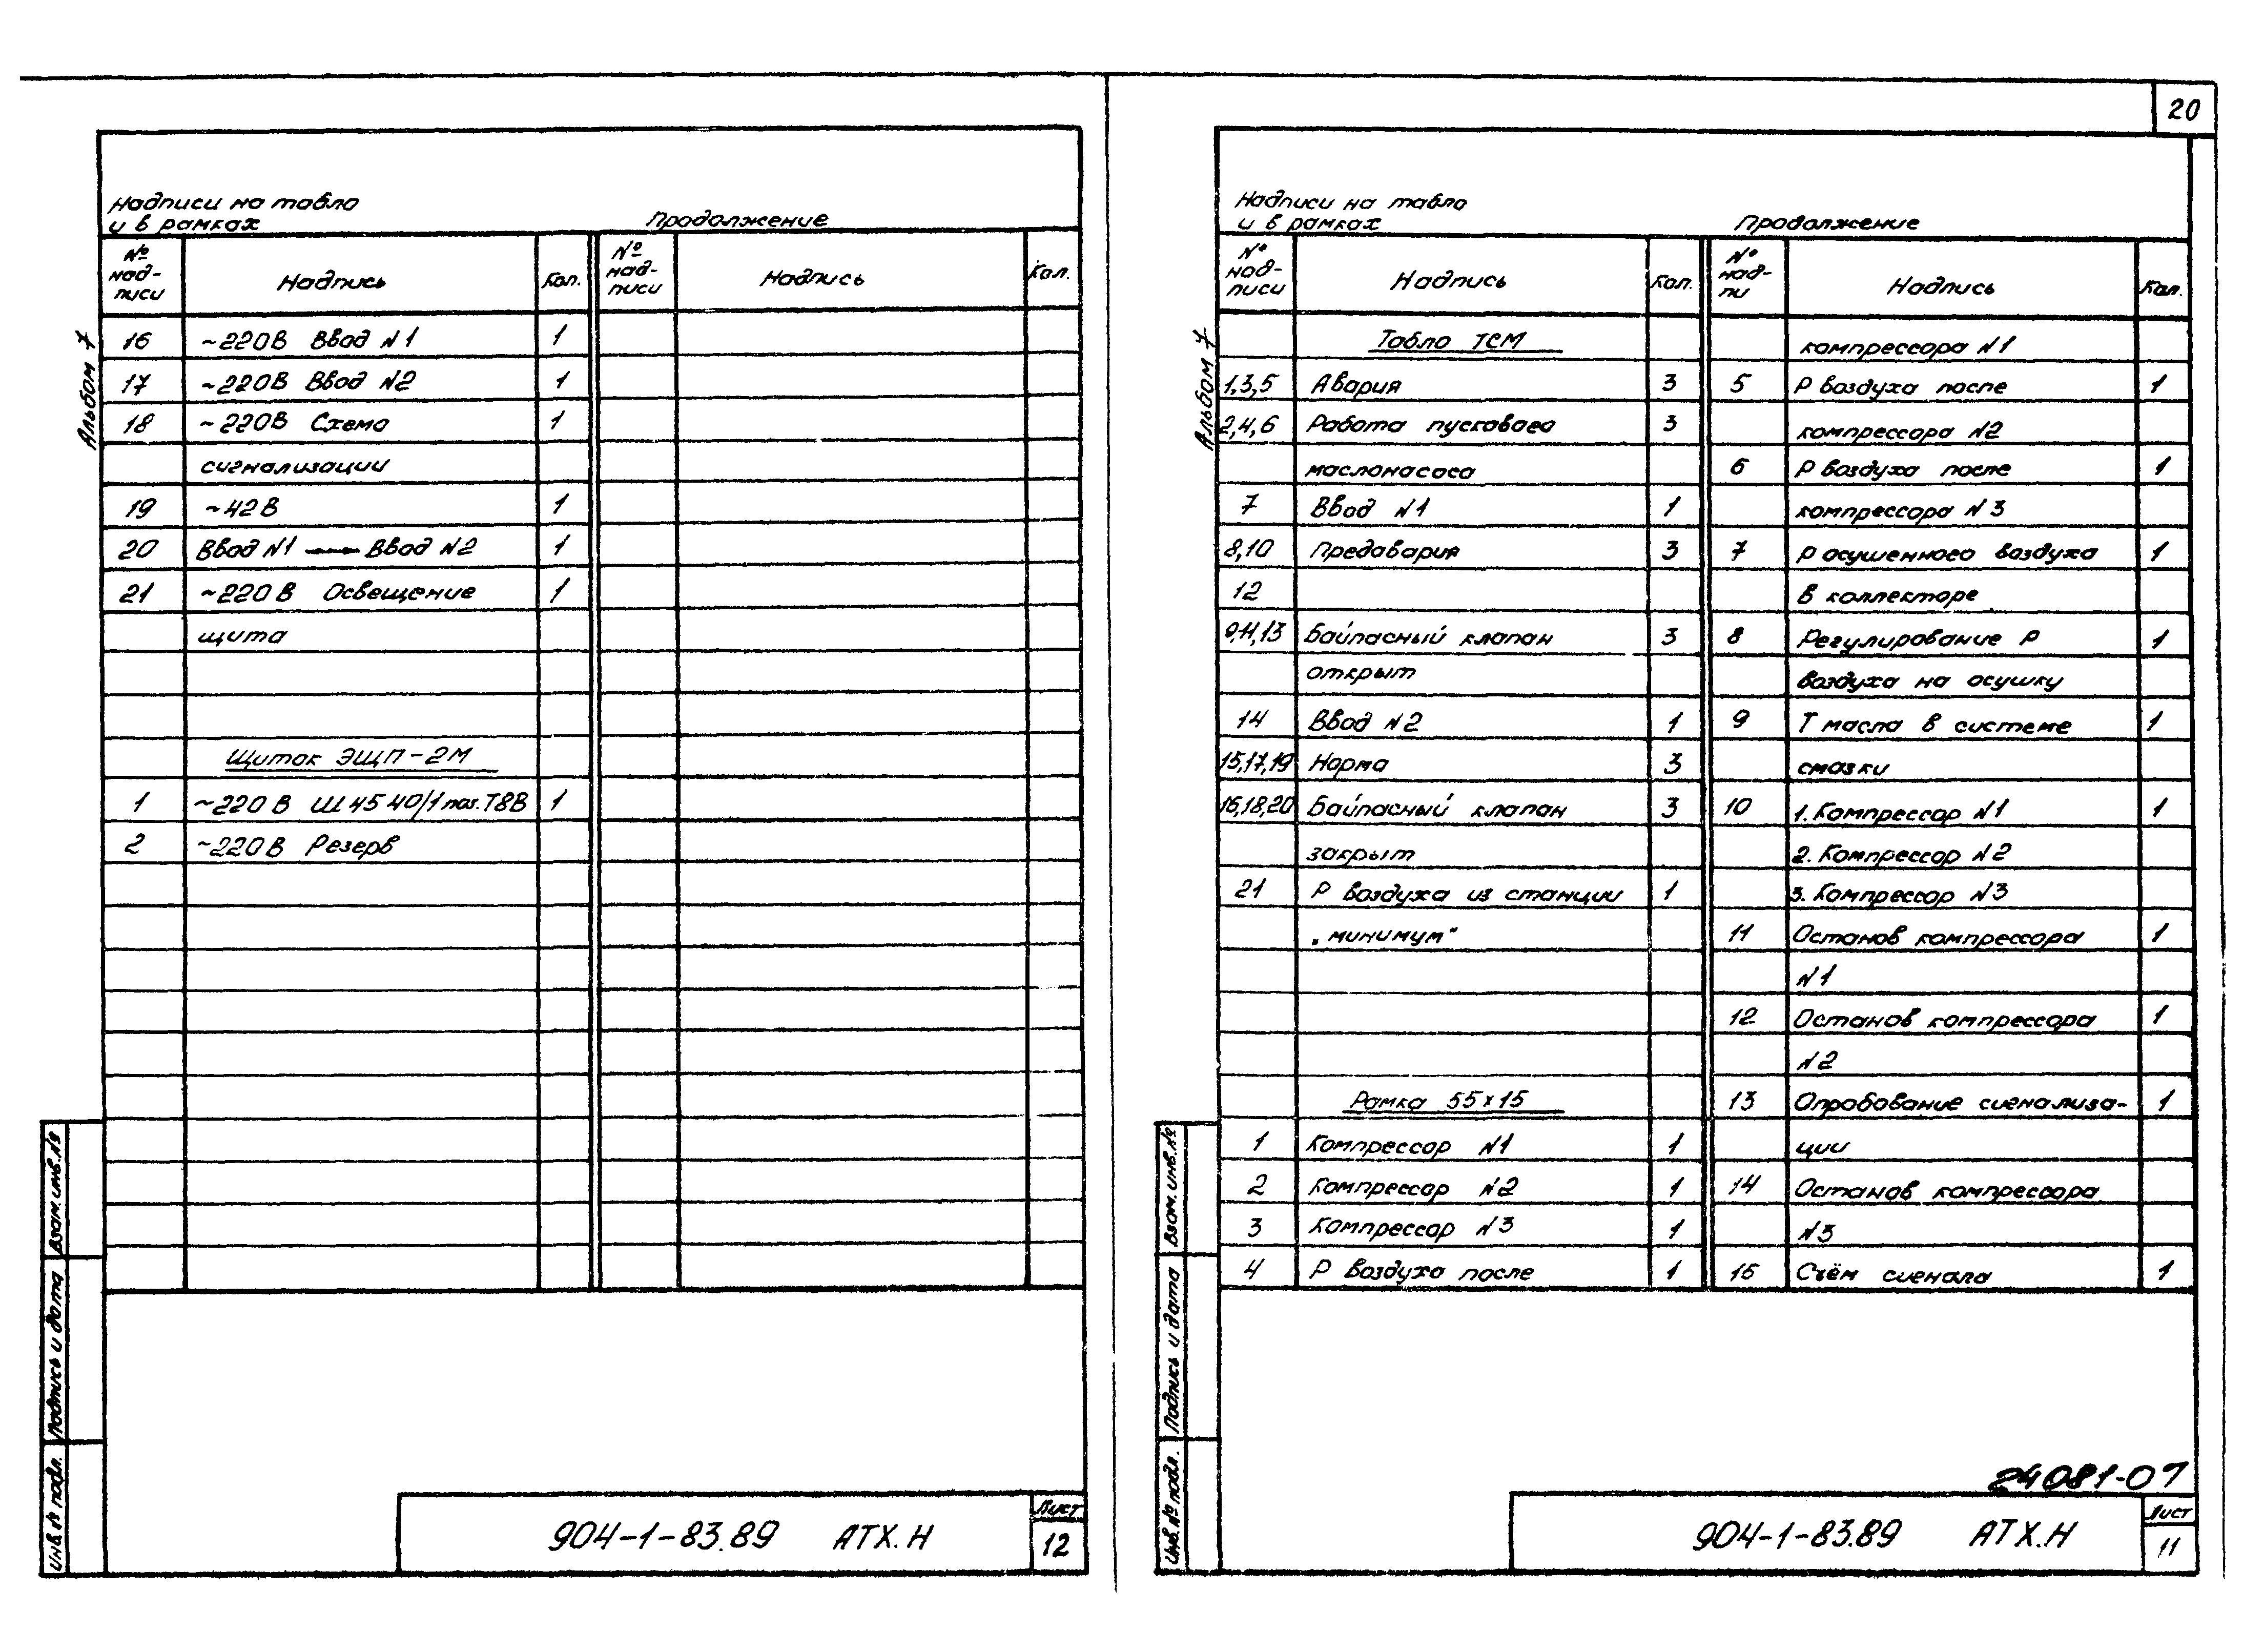 20
Альбом 7
Надписи на табло
и в рамках
Продолжение
№ над-писи Надпись Кол. № над-писи Надпись Кол.
16 ~220В Ввод N1 1
17 ~220В Ввод N2 1
18 ~220В Схема 1
сигнализации
19 ~42В 1
20 Ввод N1 Ввод N2 1
21 ~220В Освещение 1
щита
Щиток ЭЩП-2М
1 ~220В Ш4540/1 поз.Т8В 1
2 ~220В Резерв
Взам.инв.№
Подпись и дата
Инв.№ подл.
904-1-83.89 АТХ.Н
Лист
12
Альбом 7
Надписи на табло
и в рамках
Продолжение
№ над-писи Надпись Кол.
Табло ТСМ
1,3,5 Авария 3
2,4,6 Работа пускового 3
маслонасоса
7 Ввод N1 1
8,10 Предавария 3
12
9,11,13 Байпасный клапан 3
открыт
14 Ввод N2 1
15,17,19 Норма 3
16,18,20 Байпасный клапан 3
закрыт
21 Р воздуха из станции 1
„минимум"
Рамка 55х15
1 Компрессор N1 1
2 Компрессор N2 1
3 Компрессор N3 1
4 Р воздуха после 1
№ над-пи Надпись Кол.
компрессора N1
5 Р воздуха после 1
компрессора N2
6 Р воздуха после 1
компрессора N3
7 Р осушенного воздуха 1
в коллекторе
8 Регулирование Р 1
воздуха на осушку
9 Т масла в системе 1
смазки
10 1. Компрессор N1 1
2. Компрессор N2
3. Компрессор N3
11 Останов компрессора 1
N1
12 Останов компрессора 1
N2
13 Опробование сигнализа- 1
ции
14 Останов компрессора
N3
15 Съём сигнала 1
Взам.инв.№
Подпись и дата
Инв.№ подл.
24081-07
904-1-83.89 АТХ.Н
Лист
11